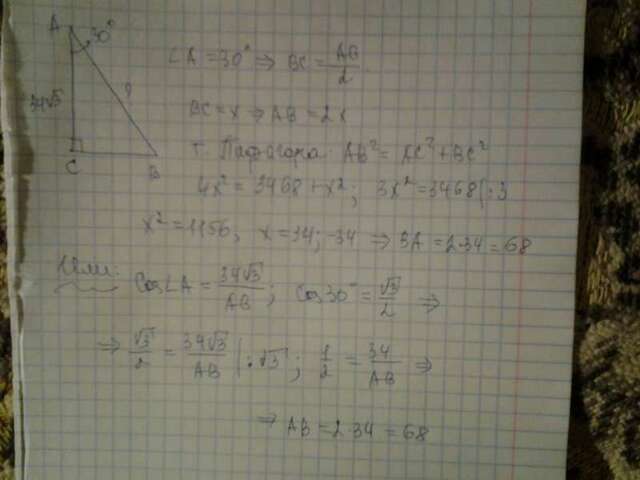 A
30°
34√3
?
C
B
∠A = 30° ⇒ BC = AB/2
BC = x ⇒ AB = 2x
т. Пифагора: AB² = AC² + BC²
4x² = 3468 + x²; 3x² = 3468 | :3
x² = 1156, x = 34; -34 ⇒ BA = 2·34 = 68
Или:
Cos∠A = 34√3/AB; Cos30° = √3/2 ⇒
⇒ √3/2 = 34√3/AB | :√3; 1/2 = 34/AB ⇒
⇒ AB = 2·34 = 68